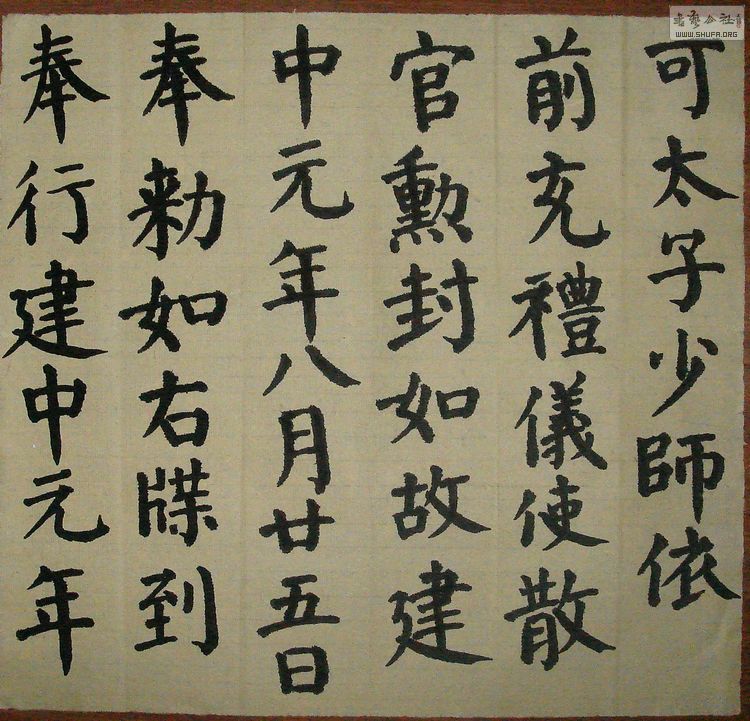 可太子少師依
前充禮儀使散
官勲封如故建
中元年八月廿五日
奉勑如右牒到
奉行建中元年
WWW.SHUFA.ORG